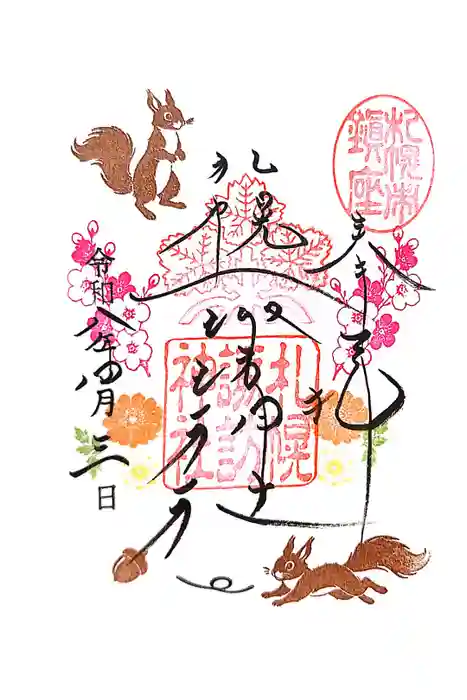 札幌市
鎮座
奉拝
札幌
諏訪神社
札幌
諏訪
神社
令和八年四月三日